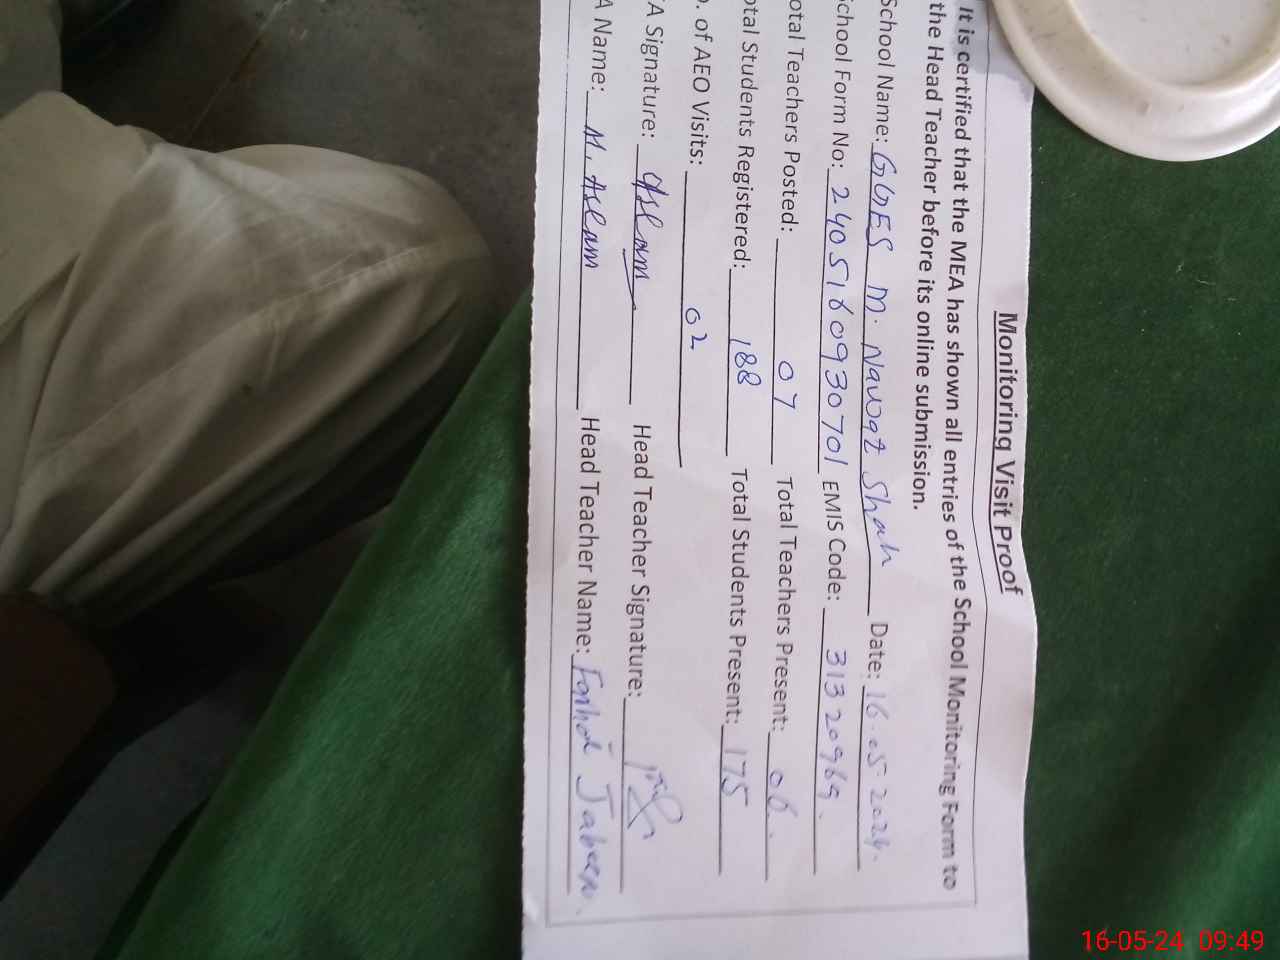 Monitoring Visit Proof
It is certified that the MEA has shown all entries of the School Monitoring Form to
the Head Teacher before its online submission.
School Name: GGES M. Nawaz Shah Date: 16-05-2024.
School Form No: 2405160930701 EMIS Code: 31320969.
otal Teachers Posted: 07 Total Teachers Present: 06.
otal Students Registered: 188 Total Students Present: 175
. of AEO Visits: 02
A Signature: Aslam Head Teacher Signature:
A Name: M. Aslam Head Teacher Name: Farhat Jabeen.
16-05-24 09:49